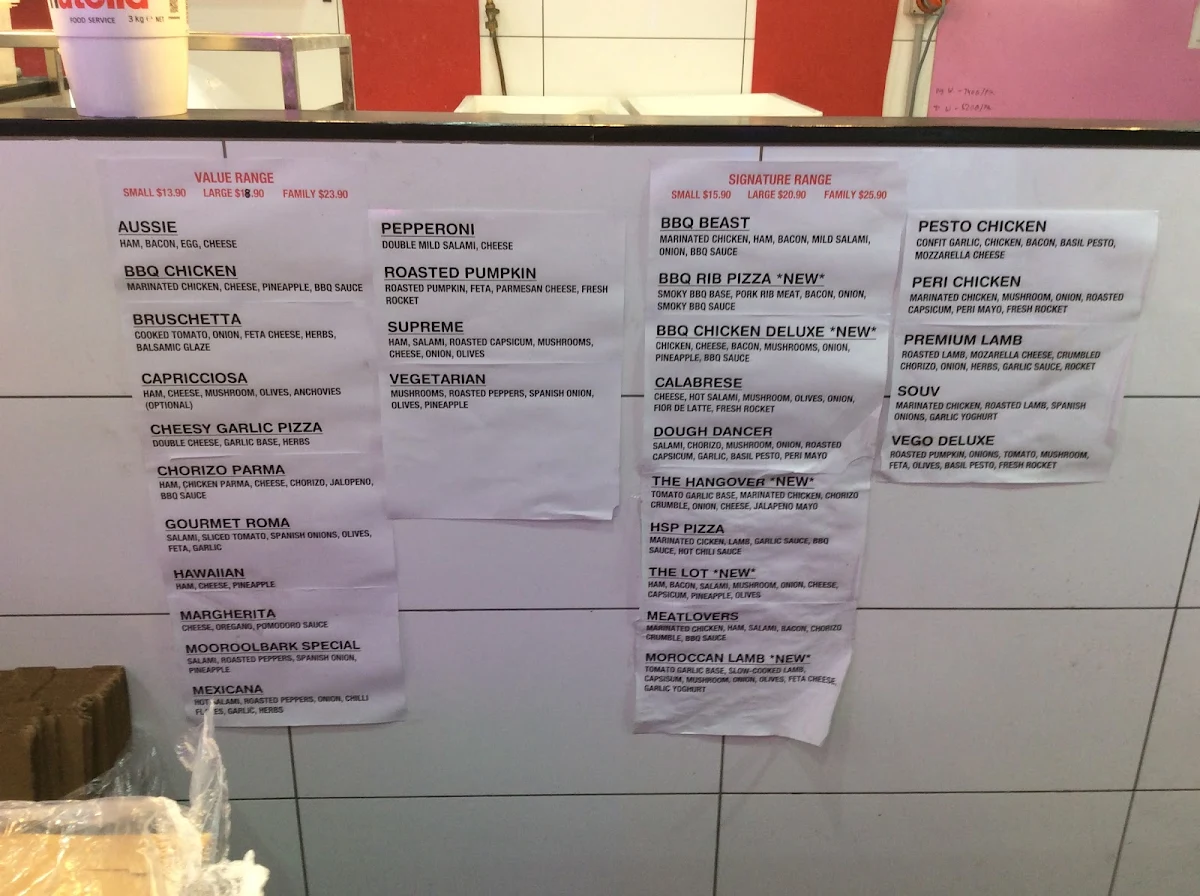 nutella
FOOD SERVICE 3 kg e NET
VALUE RANGE
SMALL $13.90 LARGE $18.90 FAMILY $23.90
AUSSIE
HAM, BACON, EGG, CHEESE
BBQ CHICKEN
MARINATED CHICKEN, CHEESE, PINEAPPLE, BBQ SAUCE
BRUSCHETTA
COOKED TOMATO, ONION, FETA CHEESE, HERBS,
BALSAMIC GLAZE
CAPRICCIOSA
HAM, CHEESE, MUSHROOM, OLIVES, ANCHOVIES
(OPTIONAL)
CHEESY GARLIC PIZZA
DOUBLE CHEESE, GARLIC BASE, HERBS
CHORIZO PARMA
HAM, CHICKEN PARMA, CHEESE, CHORIZO, JALOPENO,
BBQ SAUCE
GOURMET ROMA
SALAMI, SLICED TOMATO, SPANISH ONIONS, OLIVES,
FETA, GARLIC
HAWAIIAN
HAM, CHEESE, PINEAPPLE
MARGHERITA
CHEESE, OREGANO, POMODORO SAUCE
MOOROOLBARK SPECIAL
SALAMI, ROASTED PEPPERS, SPANISH ONION,
PINEAPPLE
MEXICANA
HOT SALAMI, ROASTED PEPPERS, ONION, CHILLI
FLAKES, GARLIC, HERBS
PEPPERONI
DOUBLE MILD SALAMI, CHEESE
ROASTED PUMPKIN
ROASTED PUMPKIN, FETA, PARMESAN CHEESE, FRESH
ROCKET
SUPREME
HAM, SALAMI, ROASTED CAPSICUM, MUSHROOMS,
CHEESE, ONION, OLIVES
VEGETARIAN
MUSHROOMS, ROASTED PEPPERS, SPANISH ONION,
OLIVES, PINEAPPLE
SIGNATURE RANGE
SMALL $15.90 LARGE $20.90 FAMILY $25.90
BBQ BEAST
MARINATED CHICKEN, HAM, BACON, MILD SALAMI,
ONION, BBQ SAUCE
BBQ RIB PIZZA *NEW*
SMOKY BBQ BASE, PORK RIB MEAT, BACON, ONION,
SMOKY BBQ SAUCE
BBQ CHICKEN DELUXE *NEW*
CHICKEN, CHEESE, BACON, MUSHROOMS, ONION,
PINEAPPLE, BBQ SAUCE
CALABRESE
CHEESE, HOT SALAMI, MUSHROOM, OLIVES, ONION,
FIOR DE LATTE, FRESH ROCKET
DOUGH DANCER
SALAMI, CHORIZO, MUSHROOM, ONION, ROASTED
CAPSICUM, GARLIC, BASIL PESTO, PERI MAYO
THE HANGOVER *NEW*
TOMATO GARLIC BASE, MARINATED CHICKEN, CHORIZO
CRUMBLE, ONION, CHEESE, JALAPENO MAYO
HSP PIZZA
MARINATED CICKEN, LAMB, GARLIC SAUCE, BBQ
SAUCE, HOT CHILI SAUCE
THE LOT *NEW*
HAM, BACON, SALAMI, MUSHROOM, ONION, CHEESE,
CAPSICUM, PINEAPPLE, OLIVES
MEATLOVERS
MARINATED CHICKEN, HAM, SALAMI, BACON, CHORIZO
CRUMBLE, BBQ SAUCE
MOROCCAN LAMB *NEW*
TOMATO GARLIC BASE, SLOW-COOKED LAMB,
CAPSISUM, MUSHROOM, ONION, OLIVES, FETA CHEESE,
GARLIC YOGHURT
PESTO CHICKEN
CONFIT GARLIC, CHICKEN, BACON, BASIL PESTO,
MOZZARELLA CHEESE
PERI CHICKEN
MARINATED CHICKEN, MUSHROOM, ONION, ROASTED
CAPSICUM, PERI MAYO, FRESH ROCKET
PREMIUM LAMB
ROASTED LAMB, MOZARELLA CHEESE, CRUMBLED
CHORIZO, ONION, HERBS, GARLIC SAUCE, ROCKET
SOUV
MARINATED CHICKEN, ROASTED LAMB, SPANISH
ONIONS, GARLIC YOGHURT
VEGO DELUXE
ROASTED PUMPKIN, ONIONS, TOMATO, MUSHROOM,
FETA, OLIVES, BASIL PESTO, FRESH ROCKET